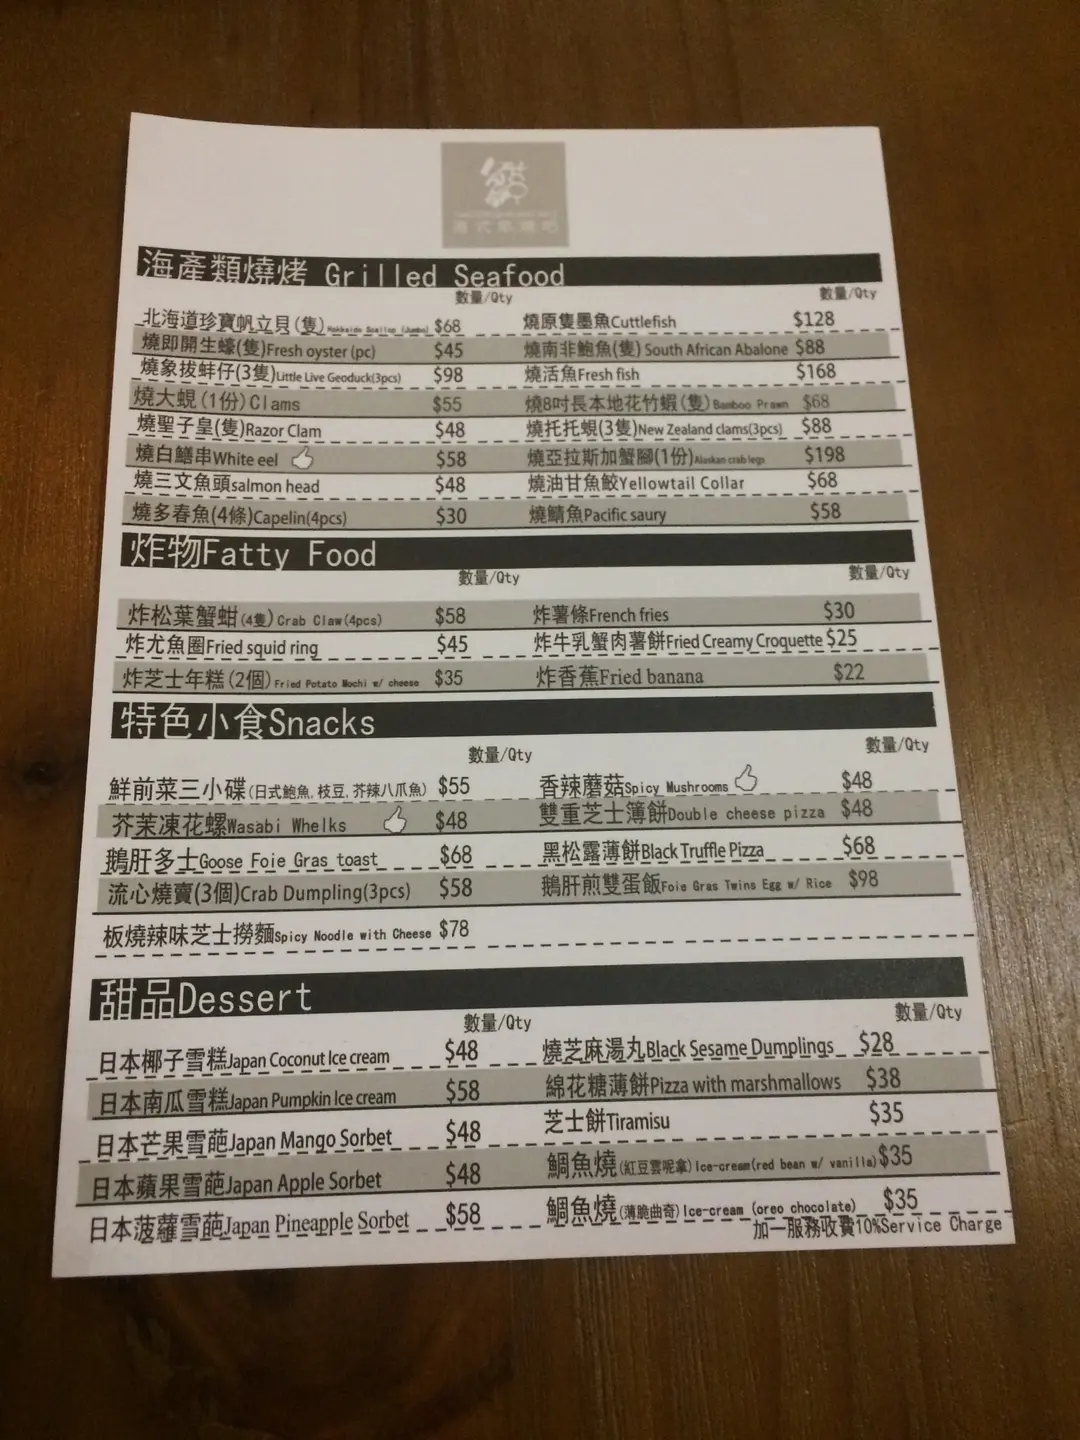 海產類燒烤 Grilled Seafood
數量/Qty 數量/Qty
北海道珍寶帆立貝(隻)Hokkaido Scallop (Jumbo) $68 燒原隻墨魚Cuttlefish $128
燒即開生蠔(隻)Fresh oyster (pc) $45 燒南非鮑魚(隻) South African Abalone $88
燒象拔蚌仔(3隻)Little Live Geoduck(3pcs) $98 燒活魚Fresh fish $168
燒大蜆(1份)Clams $55 燒8吋長本地花竹蝦(隻)Bamboo Prawn $68
燒聖子皇(隻)Razor Clam $48 燒托托蜆(3隻)New Zealand clams(3pcs) $88
燒白鱔串White eel $58 燒亞拉斯加蟹腳(1份)Alaskan crab legs $198
燒三文魚頭salmon head $48 燒油甘魚鮫Yellowtail Collar $68
燒多春魚(4條)Capelin(4pcs) $30 燒鯖魚Pacific saury $58
炸物Fatty Food
數量/Qty 數量/Qty
炸松葉蟹蚶(4隻)Crab Claw(4pcs) $58 炸薯條French fries $30
炸尤魚圈Fried squid ring $45 炸牛乳蟹肉薯餅Fried Creamy Croquette $25
炸芝士年糕(2個)Fried Potato Mochi w/ cheese $35 炸香蕉Fried banana $22
特色小食Snacks
數量/Qty 數量/Qty
鮮前菜三小碟(日式鮑魚, 枝豆, 芥辣八爪魚) $55 香辣蘑菇Spicy Mushrooms $48
芥茉凍花螺Wasabi Whelks $48 雙重芝士簿餅Double cheese pizza $48
鵝肝多士Goose Foie Gras toast $68 黑松露薄餅Black Truffle Pizza $68
流心燒賣(3個)Crab Dumpling(3pcs) $58 鵝肝煎雙蛋飯Foie Gras Twins Egg w/ Rice $98
板燒辣味芝士撈麵Spicy Noodle with Cheese $78
甜品Dessert
數量/Qty 數量/Qty
日本椰子雪糕Japan Coconut Ice cream $48 燒芝麻湯丸Black Sesame Dumplings $28
日本南瓜雪糕Japan Pumpkin Ice cream $58 綿花糖薄餅Pizza with marshmallows $38
日本芒果雪葩Japan Mango Sorbet $48 芝士餅Tiramisu $35
日本蘋果雪葩Japan Apple Sorbet $48 鯛魚燒(紅豆雲呢拿)Ice-cream(red bean w/ vanilla) $35
日本菠蘿雪葩Japan Pineapple Sorbet $58 鯛魚燒(薄脆曲奇)Ice-cream (oreo chocolate) $35
加一服務收費10%Service Charge